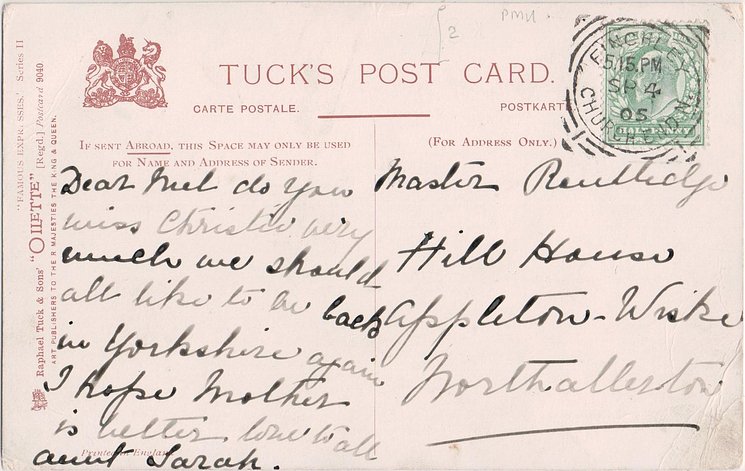 2 PMU
TUCK'S POST CARD.
CARTE POSTALE. POSTKARTE
IF SENT ABROAD, THIS SPACE MAY ONLY BE USED
FOR NAME AND ADDRESS OF SENDER.
(FOR ADDRESS ONLY.)
FINCHLEY
5.15.PM
SP 4
05
CHURCH END.N.
HALF PENNY
"FAMOUS EXPRESSES." Series II
Raphael Tuck & Sons' "OILETTE" [Regd.] Postcard 9040
ART PUBLISHERS TO THEIR MAJESTIES THE KING & QUEEN.
Dear Mel do you
miss Christie very
much we should
all like to be back
in Yorkshire again
I hope Mother
is better love to all
aunt Sarah.
Printed in England
Master Routledge
Hill House
Appleton-Wiske
Northallerton